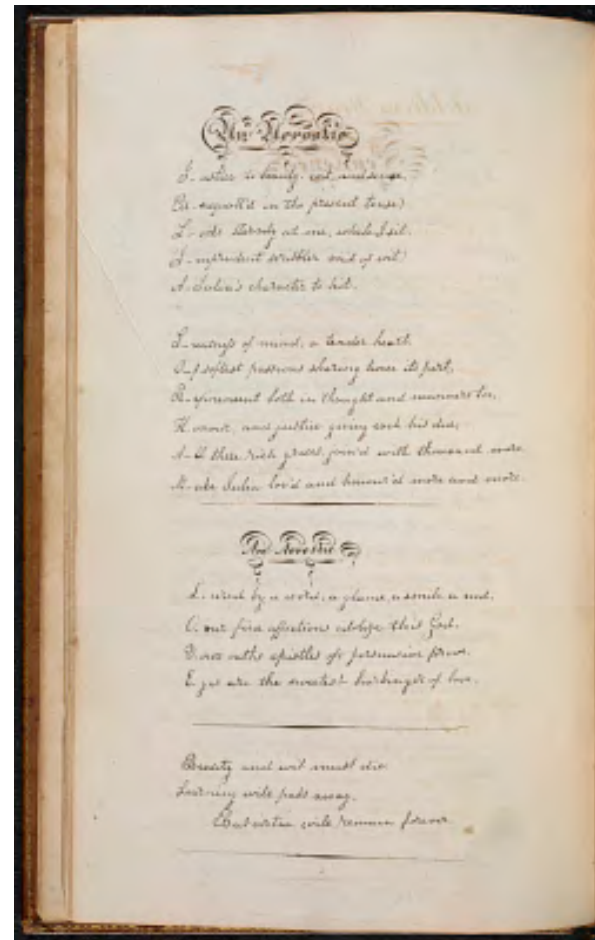 An Acrostic
J-ustice to beauty wit and sense,
in the present tense)
L-ooks at me, while I sit
I-mprudent scribbler void of wit
A-Julia's character to hit.
of mind, a tender heart
O-f softest passions sharing house its part,
R-efinement both in thought and manners too,
H-onor, and justice giving each his due,
A-ll these rich graces join'd with thousand more
M-ake Julia lov'd and honour'd more and more.
An Acrostic
L- by a word, a glance, a smile a nod,
O-our affections this God.
V- oaths epistles of persuasion prove.
E-yes are the sweetest harbinger of love.
Beauty and wit must die
Learning will pass away.
But virtue will remain forever